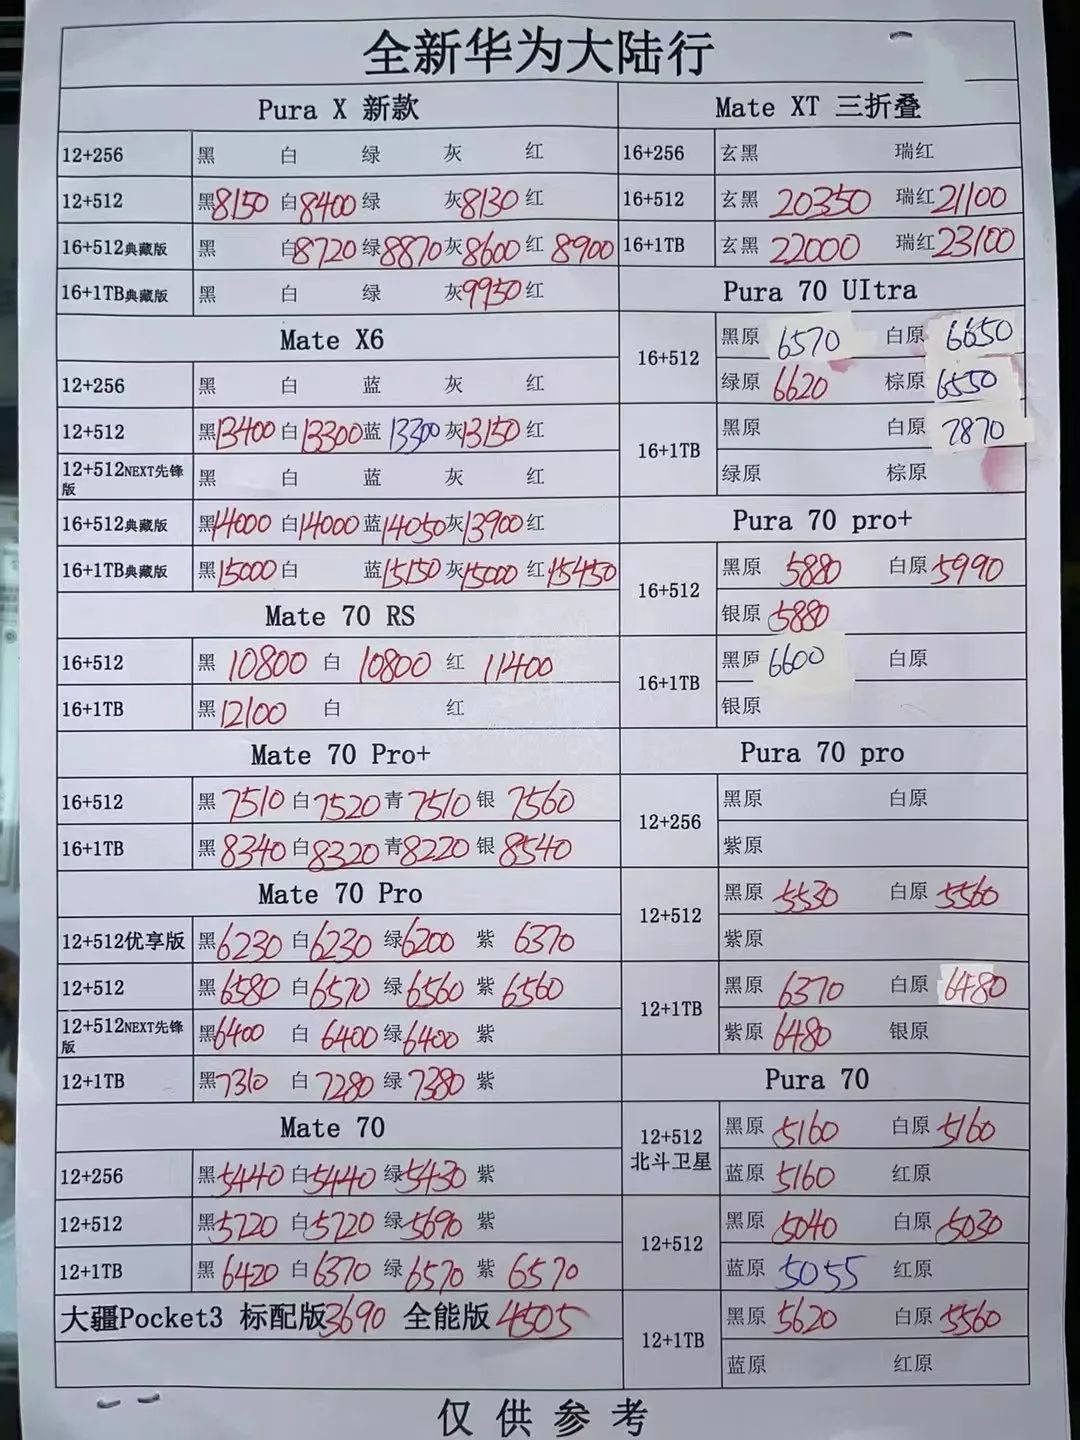 全新华为大陆行
Pura X 新款
12+256 黑 白 绿 灰 红
12+512 黑8150 白8400 绿 灰8130 红
16+512典藏版 黑 白8720 绿8870 灰8600 红8900
16+1TB典藏版 黑 白 绿 灰9950 红
Mate X6
12+256 黑 白 蓝 灰 红
12+512 黑13400 白13300 蓝13300 灰13150 红
12+512NEXT先锋版 黑 白 蓝 灰 红
16+512典藏版 黑14000 白14000 蓝14050 灰13900 红
16+1TB典藏版 黑15000 白 蓝15150 灰15000 红15450
Mate 70 RS
16+512 黑 10800 白 10800 红 11400
16+1TB 黑 12100 白 红
Mate 70 Pro+
16+512 黑7510 白7520 青7510 银7560
16+1TB 黑8340 白8320 青8220 银8540
Mate 70 Pro
12+512优享版 黑6230 白6230 绿6200 紫 6370
12+512 黑6580 白6570 绿6560 紫6560
12+512NEXT先锋版 黑6400 白6400 绿6400 紫
12+1TB 黑7310 白7280 绿7380 紫
Mate 70
12+256 黑5440 白5440 绿5430 紫
12+512 黑5720 白5720 绿5690 紫
12+1TB 黑6420 白6370 绿6570 紫6570
大疆Pocket3 标配版3690 全能版4505
Mate XT 三折叠
16+256 玄黑 瑞红
16+512 玄黑 20350 瑞红21100
16+1TB 玄黑 22000 瑞红23100
Pura 70 UItra
16+512 黑原 6570 白原 6650
绿原 6620 棕原 6550
16+1TB 黑原 白原 7870
绿原 棕原
Pura 70 pro+
16+512 黑原 5880 白原5990
银原 5880
16+1TB 黑原 6600 白原
银原
Pura 70 pro
12+256 黑原 白原
紫原
12+512 黑原 5530 白原 5560
紫原
12+1TB 黑原 6370 白原 6480
紫原 6480 银原
Pura 70
12+512北斗卫星 黑原 5160 白原5160
蓝原 5160 红原
12+512 黑原 5040 白原5030
蓝原 5055 红原
12+1TB 黑原 5620 白原5560
蓝原 红原
仅供参考